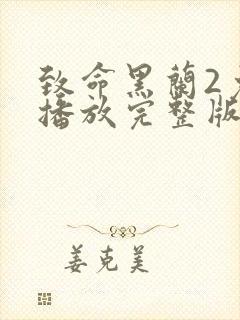 致命黑蘭2
播放完整版
姜克美